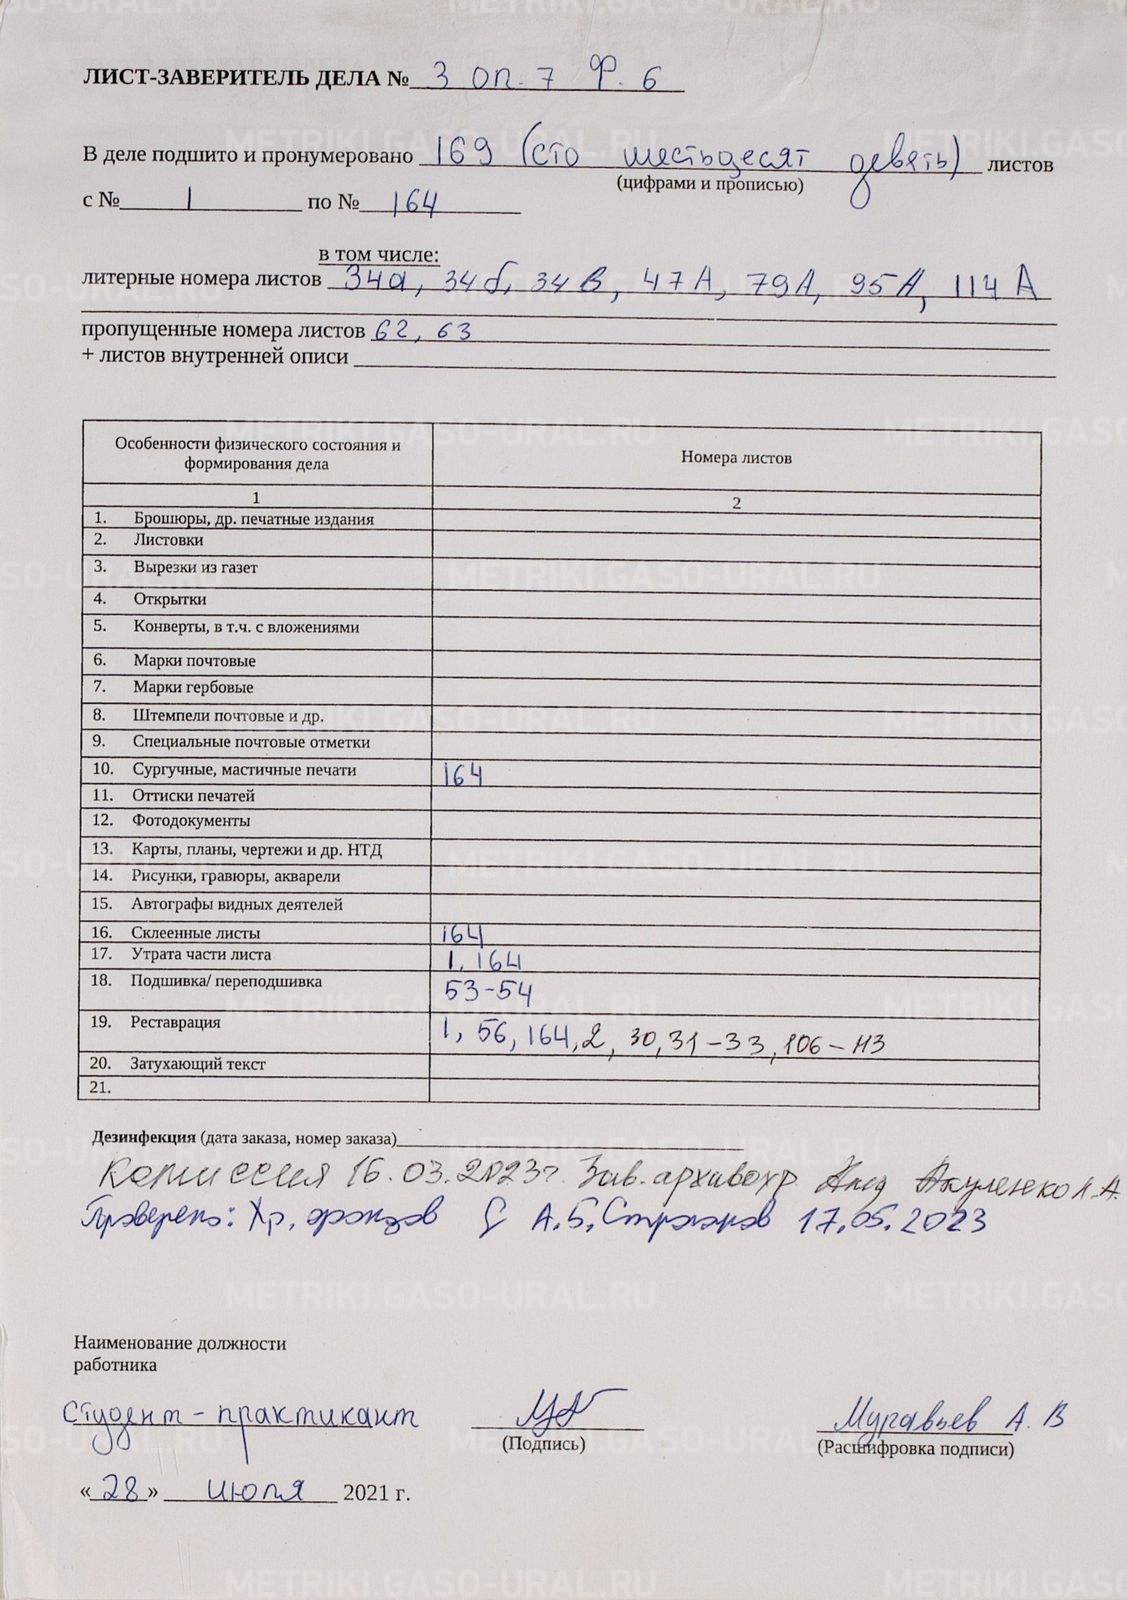 ЛИСТ-ЗАВЕРИТЕЛЬ ДЕЛА № 3 оп. 7 Ф. 6
В деле подшито и пронумеровано 169 (сто шестьдесят девять) листов
(цифрами и прописью)
с № 1 по № 164
в том числе:
литерные номера листов 34а, 34б, 34в, 47А, 79А, 95А, 114А
пропущенные номера листов 62, 63
+ листов внутренней описи
Особенности физического состояния и формирования дела Номера листов
1 2
1. Брошюры, др. печатные издания
2. Листовки
3. Вырезки из газет
4. Открытки
5. Конверты, в т.ч. с вложениями
6. Марки почтовые
7. Марки гербовые
8. Штемпели почтовые и др.
9. Специальные почтовые отметки
10. Сургучные, мастичные печати 164
11. Оттиски печатей
12. Фотодокументы
13. Карты, планы, чертежи и др. НТД
14. Рисунки, гравюры, акварели
15. Автографы видных деятелей
16. Склеенные листы 164
17. Утрата части листа 1, 164
18. Подшивка/ переподшивка 53-54
19. Реставрация 1, 56, 164, 2, 30, 31-33, 106-113
20. Затухающий текст
21.
Дезинфекция (дата заказа, номер заказа)
Комиссия 16.03.2023г. Зав. архивохр. Акуленко Л.А.
Проверено: Хр. фондов А.Б. Стрижков 17.05.2023
Наименование должности
работника
студент-практикант Муравьев А. В
(Подпись) (Расшифровка подписи)
«28» июля 2021 г.
METRIKI.GASO-URAL.RU